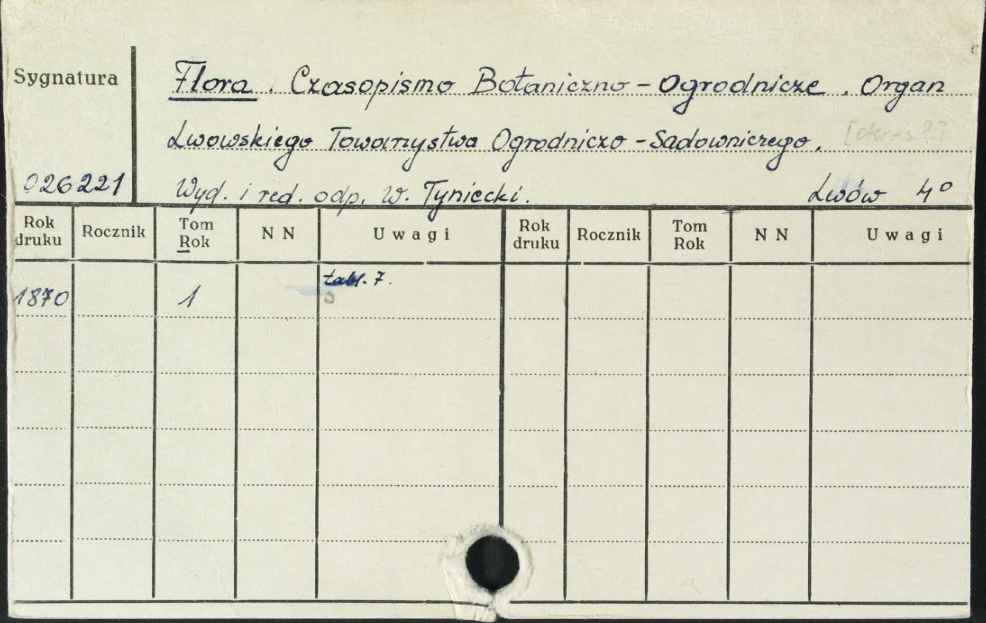 Sygnatura
Flora. Czasopismo Botaniczno-Ogrodnicze. Organ
Lwowskiego Towarzystwa Ogrodniczo-Sadowniczego.
026221
Wyd. i red. odp. W. Tyniecki. Lwów 4º
Rok druku Rocznik Tom Rok NN Uwagi Rok druku Rocznik Tom Rok NN Uwagi
1870 1 tabl. 7.